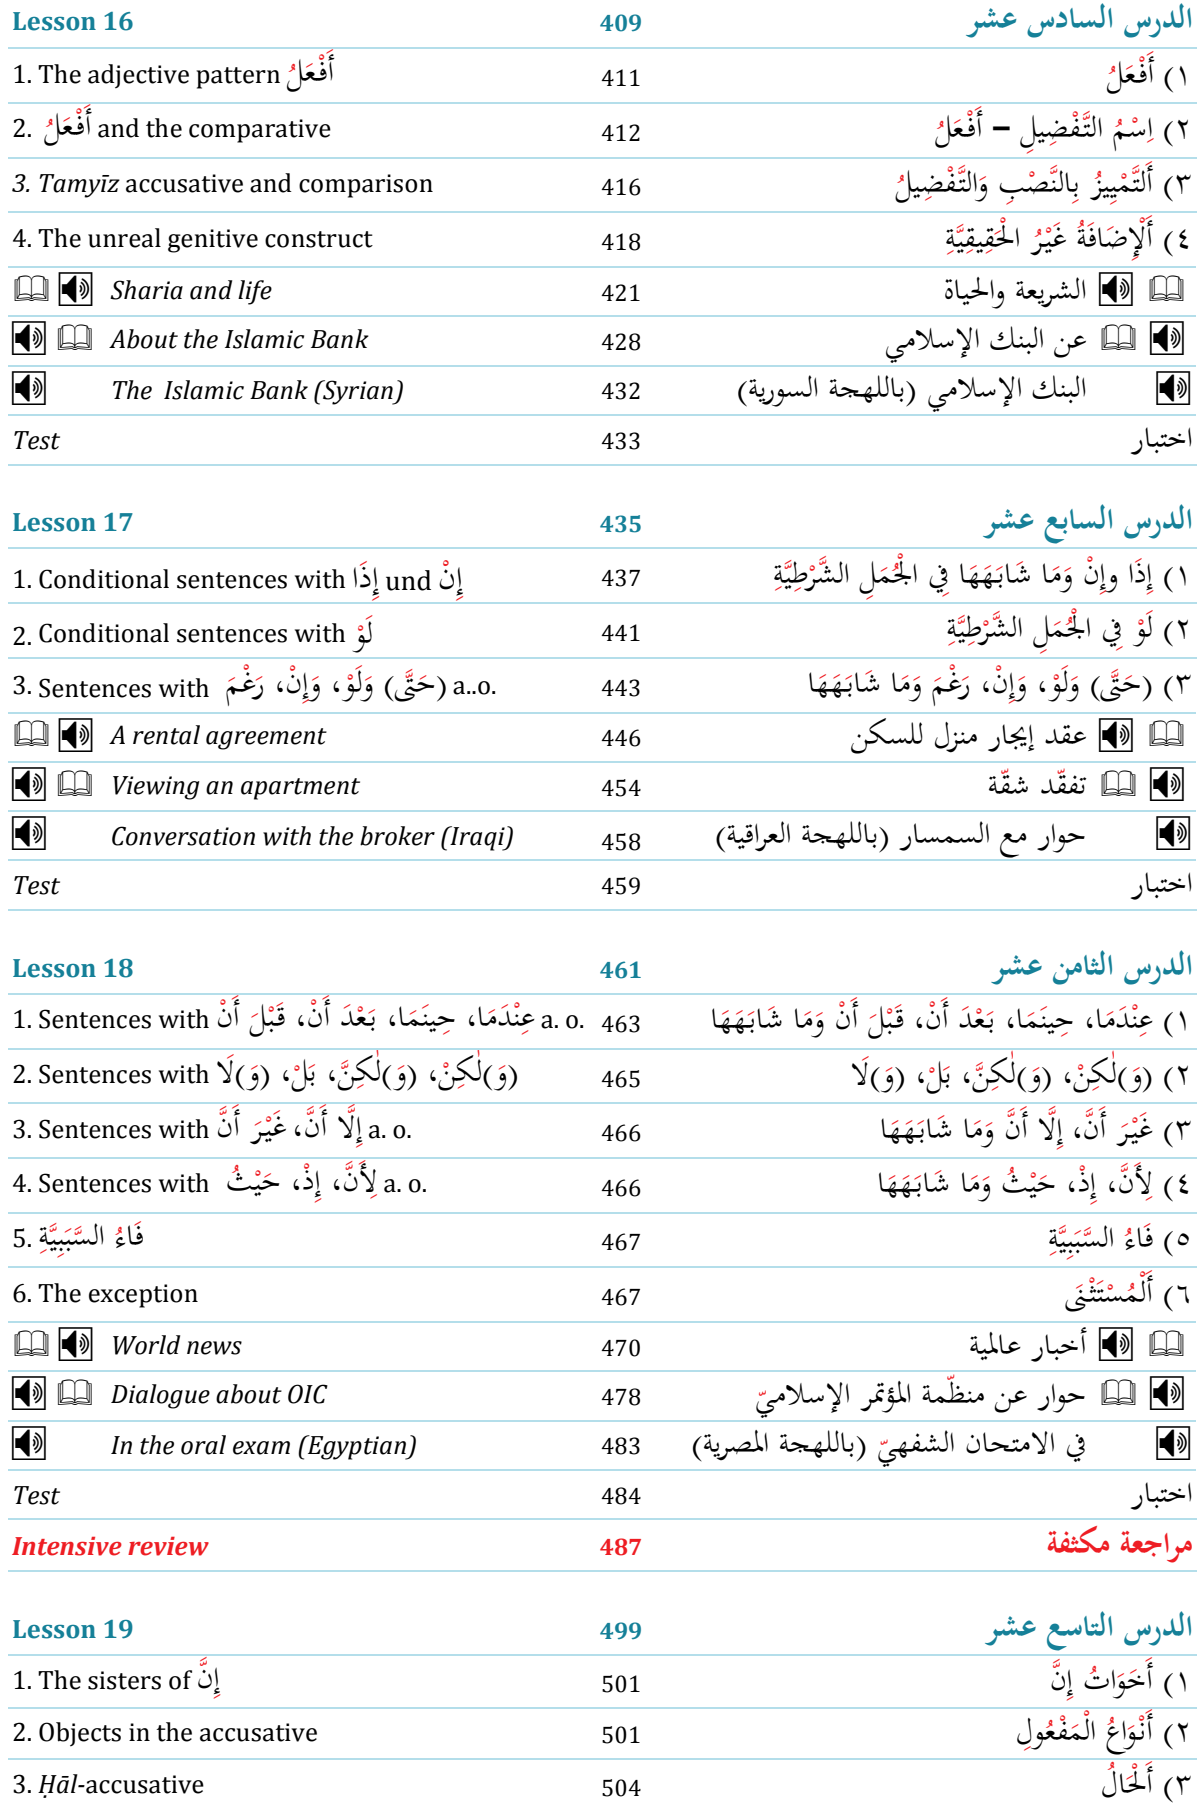 Lesson 16 409 الدرس السادس عشر
1. The adjective pattern أَفْعَلُ 411 ١) أَفْعَلُ
2. أَفْعَلُ and the comparative 412 ٢) اِسْمُ التَّفْضِيلِ – أَفْعَلُ
3. Tamyīz accusative and comparison 416 ٣) أَلتَّمْيِيزُ بِالنَّصْبِ وَالتَّفْضِيلُ
4. The unreal genitive construct 418 ٤) أَلْإِضَافَةُ غَيْرُ الْحَقِيقِيَّةِ
Sharia and life 421 الشريعة والحياة
About the Islamic Bank 428 عن البنك الإسلامي
The Islamic Bank (Syrian) 432 البنك الإسلامي (باللهجة السورية)
Test 433 اختبار
Lesson 17 435 الدرس السابع عشر
1. Conditional sentences with إِذَا und إِنْ 437 ١) إِذَا وإِنْ وَمَا شَابَهَهَا فِي الْجُمَلِ الشَّرْطِيَّةِ
2. Conditional sentences with لَوْ 441 ٢) لَوْ فِي الْجُمَلِ الشَّرْطِيَّةِ
3. Sentences with (حَتَّى) وَلَوْ، وَإِنْ، رَغْمَ a..o. 443 ٣) (حَتَّى) وَلَوْ، وَإِنْ، رَغْمَ وَمَا شَابَهَهَا
A rental agreement 446 عقد إيجار منزل للسكن
Viewing an apartment 454 تفقّد شقّة
Conversation with the broker (Iraqi) 458 حوار مع السمسار (باللهجة العراقية)
Test 459 اختبار
Lesson 18 461 الدرس الثامن عشر
1. Sentences with عِنْدَمَا، حِينَمَا، بَعْدَ أَنْ، قَبْلَ أَنْ a. o. 463 ١) عِنْدَمَا، حِينَمَا، بَعْدَ أَنْ، قَبْلَ أَنْ وَمَا شَابَهَهَا
2. Sentences with (وَ)لٰكِنْ، (وَ)لٰكِنَّ، بَلْ، (وَ)لَا 465 ٢) (وَ)لٰكِنْ، (وَ)لٰكِنَّ، بَلْ، (وَ)لَا
3. Sentences with إِلَّا أَنَّ، غَيْرَ أَنَّ a. o. 466 ٣) غَيْرَ أَنَّ، إِلَّا أَنَّ وَمَا شَابَهَهَا
4. Sentences with لِأَنَّ، إِذْ، حَيْثُ a. o. 466 ٤) لِأَنَّ، إِذْ، حَيْثُ وَمَا شَابَهَهَا
5. فَاءُ السَّبَبِيَّةِ 467 ٥) فَاءُ السَّبَبِيَّةِ
6. The exception 467 ٦) أَلْمُسْتَثْنَى
World news 470 أخبار عالمية
Dialogue about OIC 478 حوار عن منظّمة المؤتمر الإسلاميّ
In the oral exam (Egyptian) 483 في الامتحان الشفهيّ (باللهجة المصرية)
Test 484 اختبار
Intensive review 487 مراجعة مكثفة
Lesson 19 499 الدرس التاسع عشر
1. The sisters of إِنَّ 501 ١) أَخَوَاتُ إِنَّ
2. Objects in the accusative 501 ٢) أَنْوَاعُ الْمَفْعُولِ
3. Ḥāl-accusative 504 ٣) أَلْحَالُ